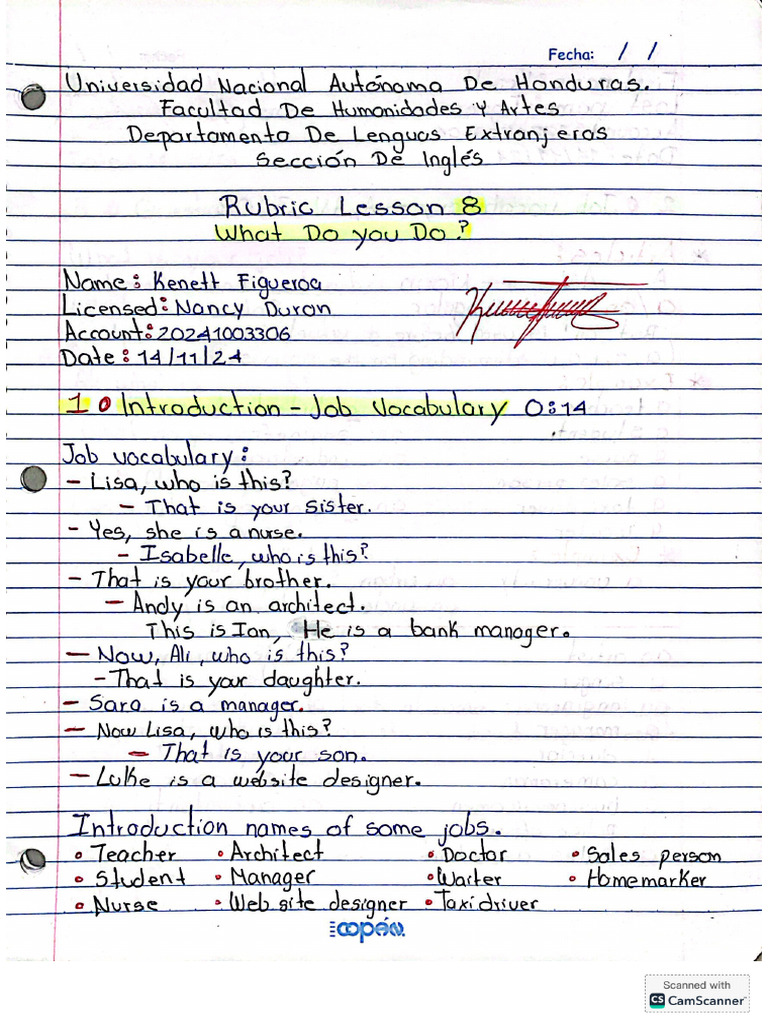 Fecha: / /
Universidad Nacional Autónoma De Honduras.
Facultad De Humanidades Y Artes
Departamento De Lenguas Extranjeras
Sección De Inglés
Rubric Lesson 8
What Do you Do?
Name: Kenett Figueroa
Licensed: Nancy Duron
Account: 20241003306
Date: 14/11/24
1 • Introduction - Job Vocabulary 0:14
Job vocabulary:
- Lisa, who is this?
- That is your sister.
- Yes, she is a nurse.
- Isabelle, who is this?
- That is your brother.
- Andy is an architect.
This is Ian, He is a bank manager.
- Now, Ali, who is this?
- That is your daughter.
- Sara is a manager.
- Now Lisa, who is this?
- That is your son.
- Luke is a website designer.
Introduction names of some jobs.
• Teacher • Architect • Doctor • Sales person
• Student • Manager • Waiter • Homemarker
• Nurse • Web site designer • Taxi driver
copán
Scanned with
CS CamScanner